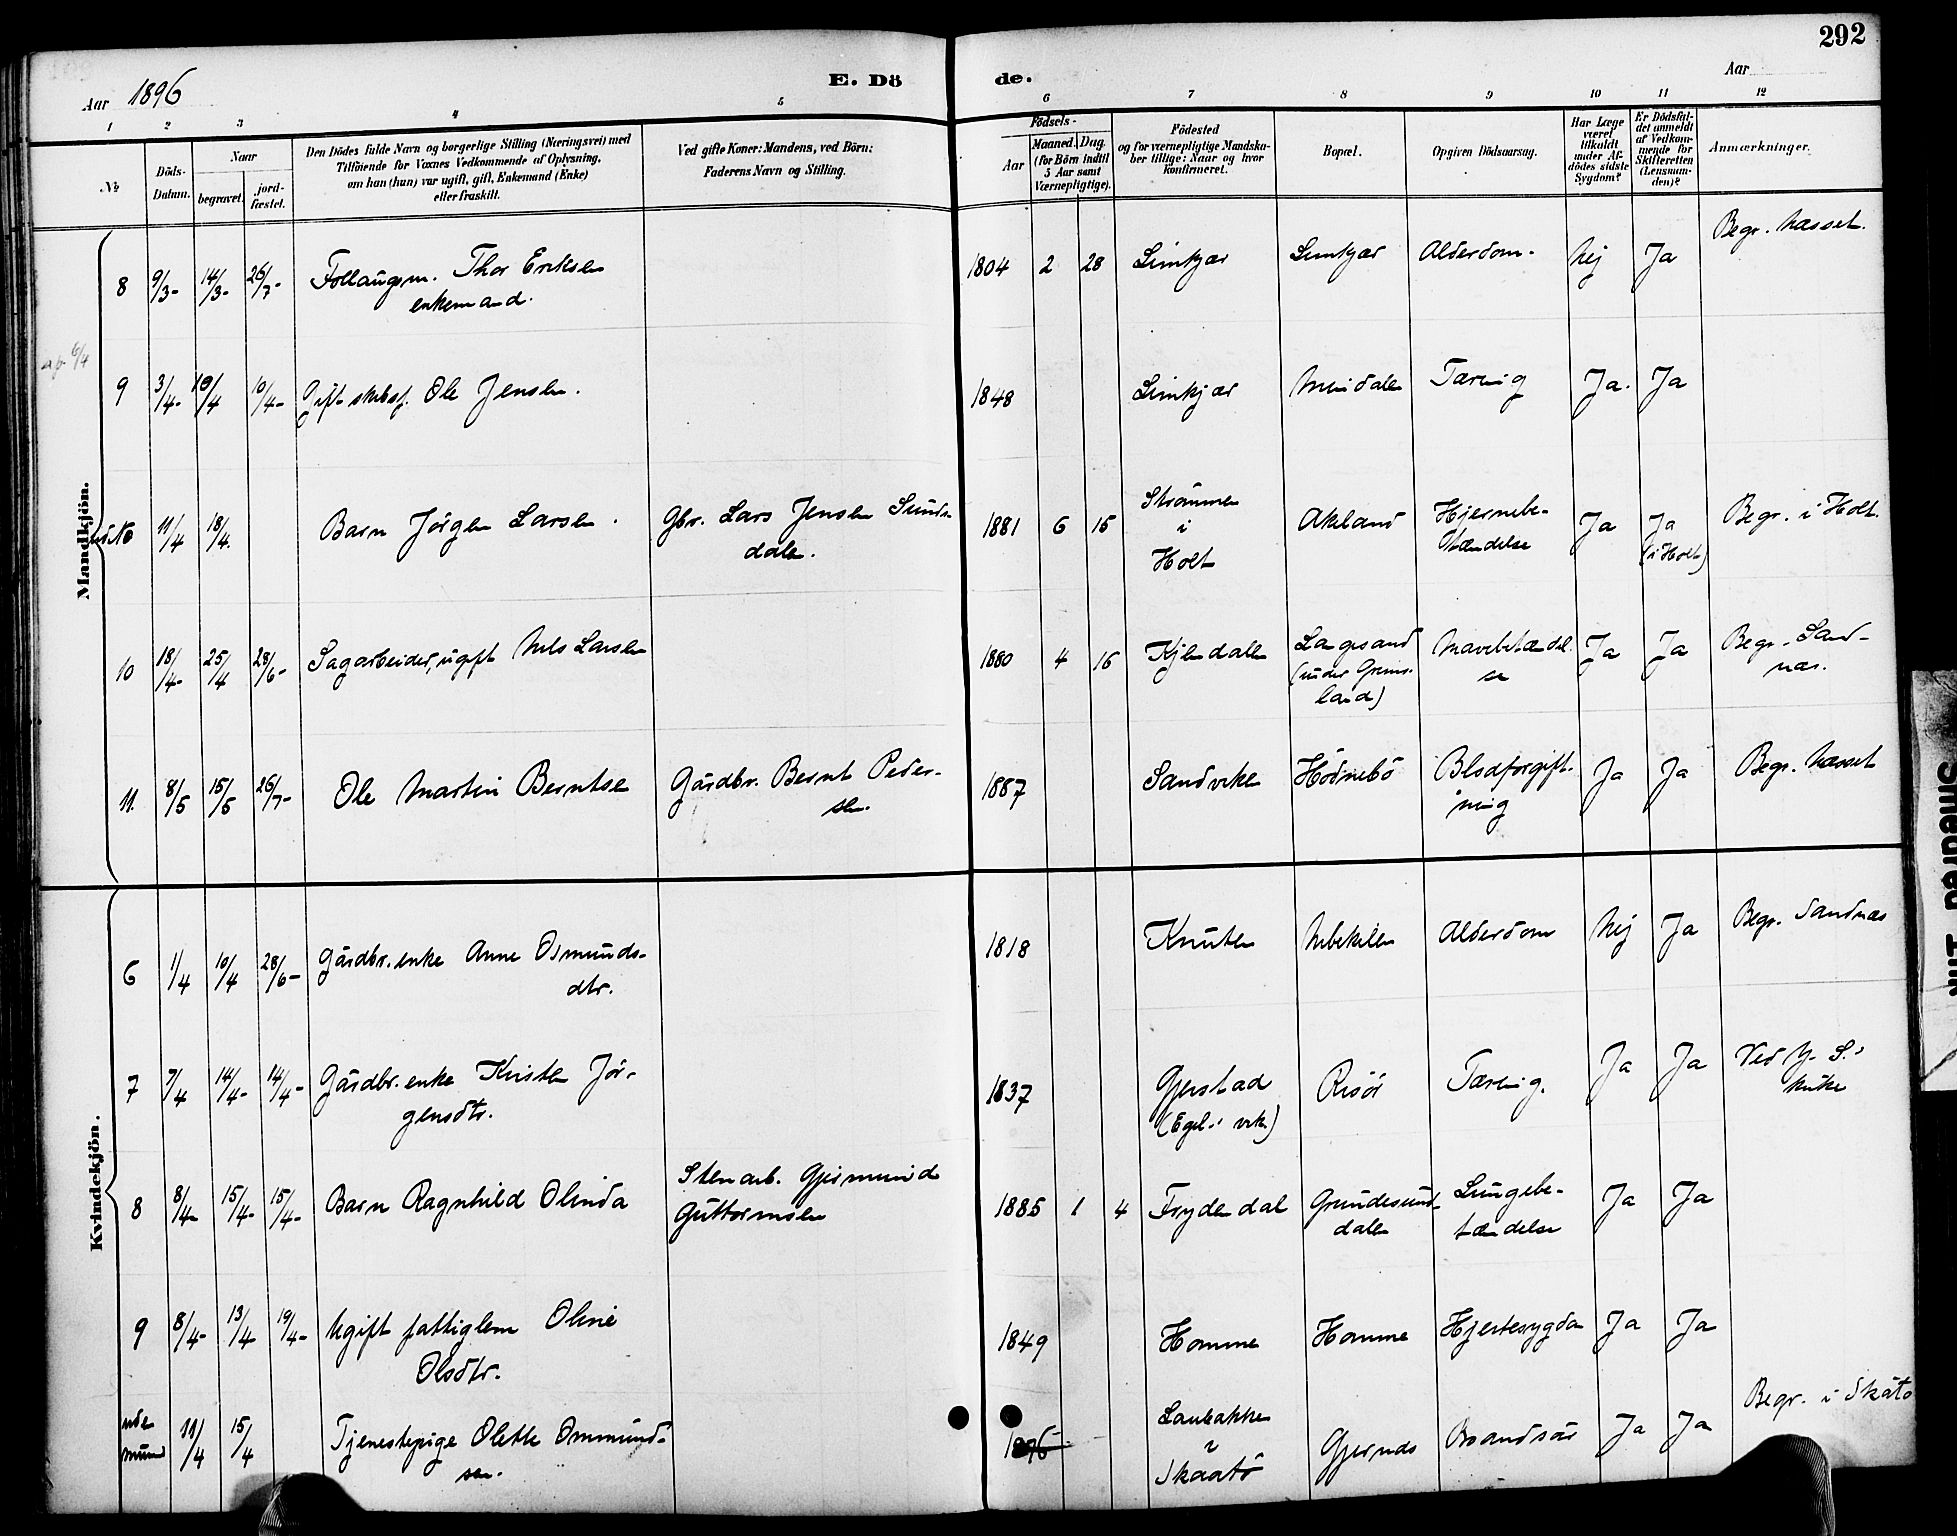 292
Aar 1896
E. Dö
de.
Aar
1 2 3 4 5 6 7 8 9 10 11 12
№
Döds-
Datum.
Naar
begravet.
jord-
fæstet.
Den Dödes fulde Navn og borgerlige Stilling (Næringsvei) med
Tilföiende for Voxnes Vedkommende af Oplysning,
om han (hun) var ugift, gift, Enkemand (Enke)
eller fraskilt.
Ved gifte Koner: Mandens, ved Börn:
Faderens Navn og Stilling.
Födsels-
Aar
Maaned. Dag
(for Börn indtil
5 Aar samt
Værnepligtige).
Födested
og for værnepligtige Mandska-
ber tillige: Naar og hvor
konfirmeret.
Bopæl.
Opgiven Dödsaarsag.
Har Læge
været
tilkaldt
under Af-
dödes sidste
Sygdom?
Er Dödsfal-
det anmeldt
af Vedkom-
mende for
Skifteretten
(Lensman-
den)?
Anmærkninger.
Mandkjön.
8 9/3- 14/3- 26/7- Follaugsm. Thor Eriksen
enkemand.
1804 2 28 Limkjær Limkjær Alderdom. Nej Ja Begr. Næsset.
6/4
9 3/4- 10/4 10/4- Gift skibsf. Ole Jensen.
1848 Limkjær Mindalen Tæring Ja. Ja
11/4 18/4. Barn Jørgen Larsen. Gbr. Lars Jensen Sunds-
dalen.
1881 6 15 Strømmen
i
Holt
Akeland Hjernebe-
tændelse
Ja Ja
(i Holt)
Begr. i Holt.
10 18/4- 25/4 28/6- Sagarbeider, ugift Nils Larsen
1880 4 16 Kjendalen Langesand
(under Grims-
land)
Mavebetændel-
se
Ja Ja Begr. Sand-
næs.
11. 8/5 15/5 26/7- Ole Martin Berntsen Gårdbr. Bernt Peder-
sen.
1887 Sandviken Hødnebø Blodforgift-
ning
Ja Ja Begr. Næsset
Kvindekjön.
6 1/4 10/4 28/6- Gårdbr.enke Anne Osmunds-
dtr.
1818 Knuten Nebekilen Alderdom Nej Ja Begr. Sandnæs
7 7/4 14/4- 14/4- Gårdbr.enke Kristen Jør-
gensdtr.
1837 Gjerstad
Risør Tæring. Ja Ja
8 8/4- 15/4- 15/4- Barn Ragnhild Olinda Stenarb. Gjermund
Guttormsen
1885 1 4 Frydendal Grundesund-
dalen
Lungebe-
tændelse
Ja Ja
9 8/4- 13/4 19/4- Ugift fattiglem Oline
Olsdtr.
1849 Homme Homme Hjertesygdom Ja Ja
11/4 15/4 Tjenestepige Olette Ommund-
sen.
1896 Laubakken
i
Skaatø
Gjernes Brandsår Ja Ja Begr. i Skåtø